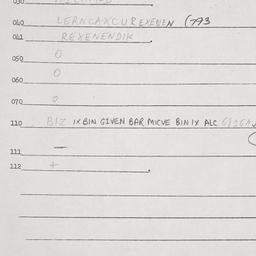 030
040 LERNCAXCUREXENEN (793
041 REXENENDIK
050 0
060 0
070 0
110 BIZ IX BIN GIVEN BAR MICVE BIN IX ALC
111 —
112 +